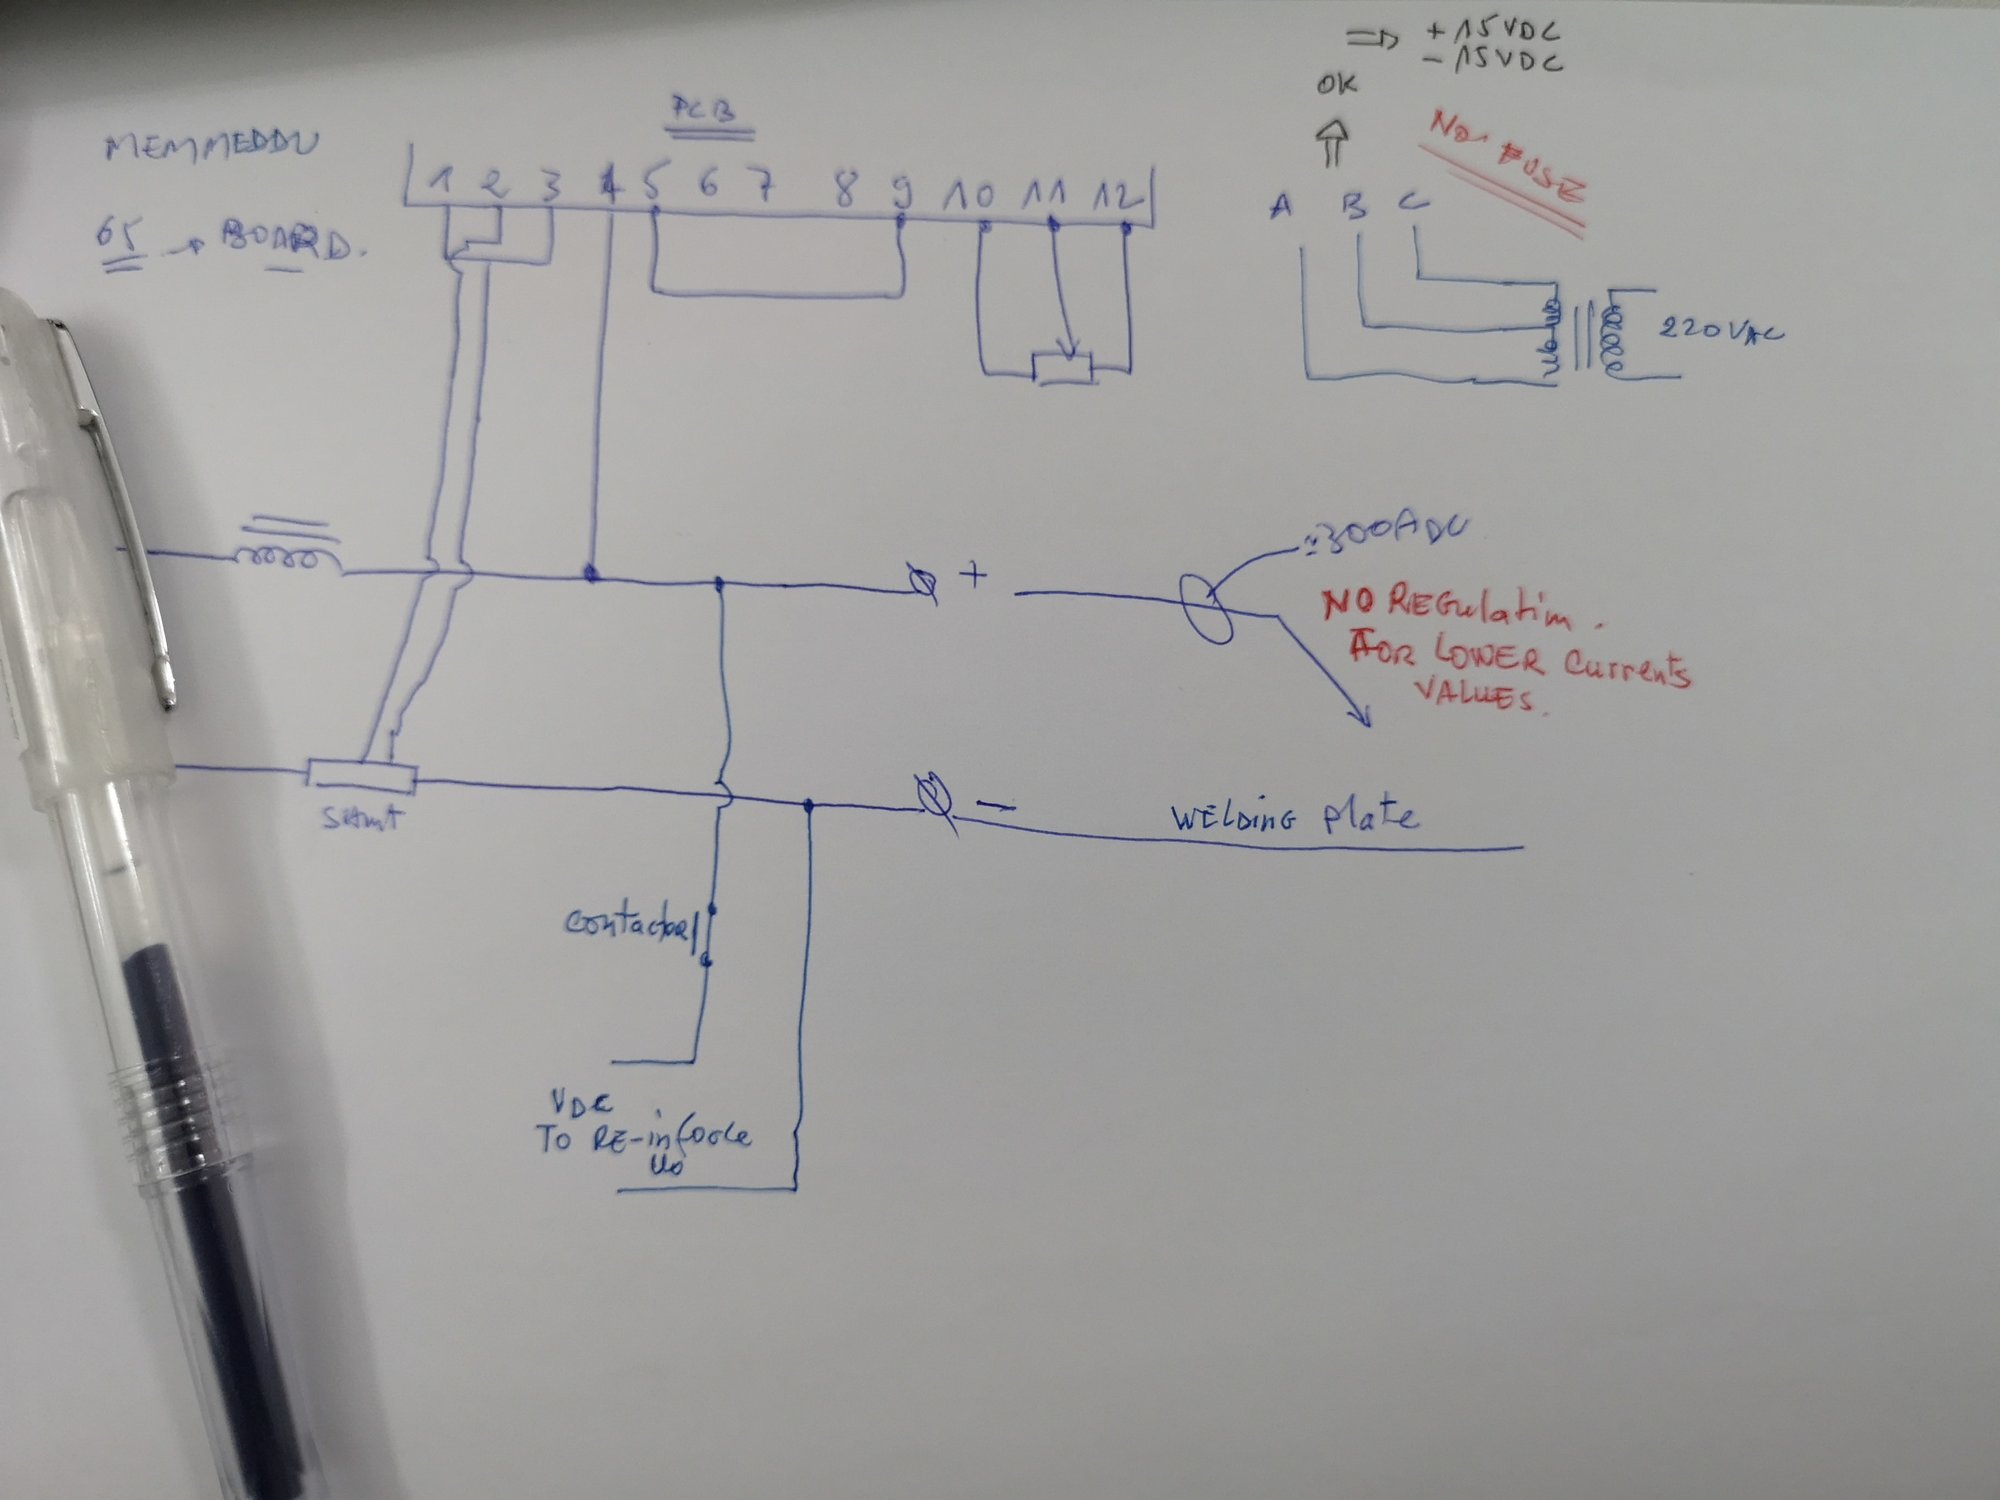 ⇒ +15VDC
-15VDC
OK
PCB
NO FUSE
MEMMEDDU
1 2 3 4 5 6 7 8 9 10 11 12
A B C
65 → BOARD.
220VAC
≈300ADC
+
NO REGulatim.
FOR LOWER Currents
VALUES.
-
WELDinG plate
SHunt
Contactor
VDC
To RE-inforce
Uo